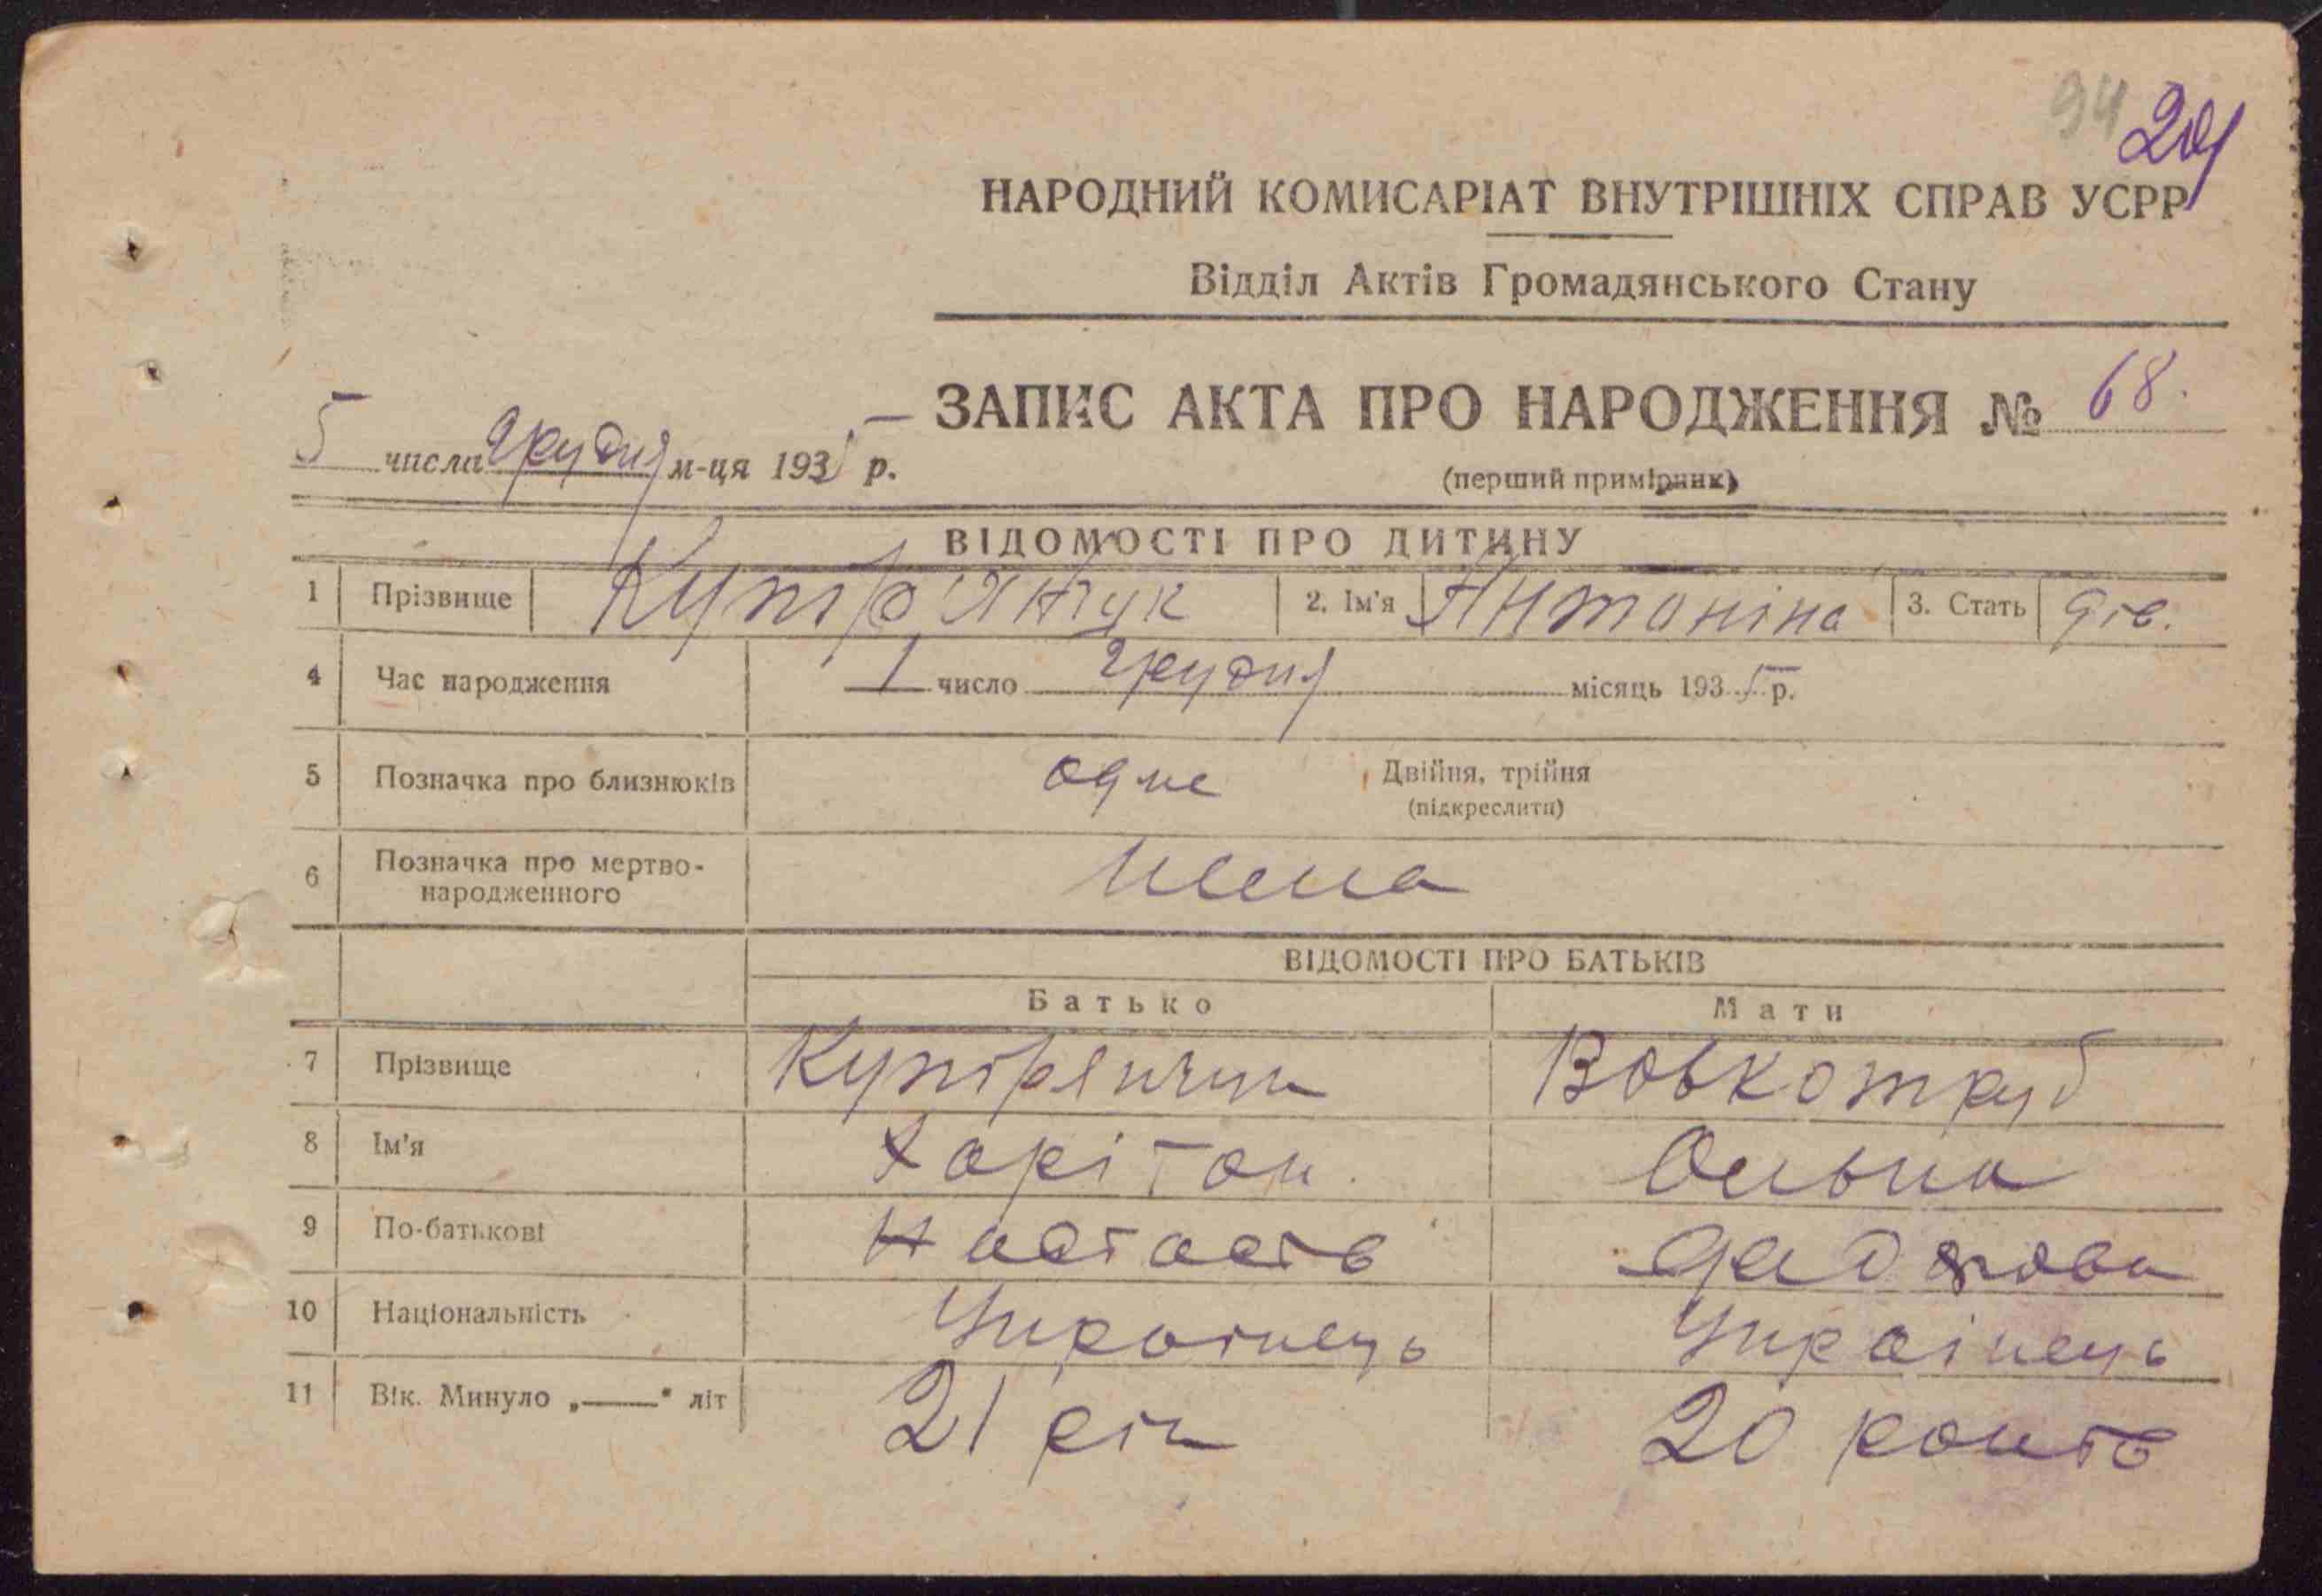 94 201
НАРОДНИЙ КОМИСАРІАТ ВНУТРІШНІХ СПРАВ УСРР
Відділ Актів Громадянського Стану
ЗАПИС АКТА ПРО НАРОДЖЕННЯ № 68.
5 числа грудня м-ця 1935 р.
(перший примірник)
ВІДОМОСТІ ПРО ДИТИНУ
1 Прізвище Купір'янчук 2. Ім'я Антоніна 3. Стать дів.
4 Час народження 1 число грудня місяць 1935 р.
5 Позначка про близнюків одне Двійня, трійня
(підкреслити)
6 Позначка про мертво-
народженного нема
ВІДОМОСТІ ПРО БАТЬКІВ
Батько Мати
7 Прізвище Купірянчук Вовкотруб
8 Ім'я Харітон. Ольна
9 По-батькові
10 Національність Українець Українець
11 Вік. Минуло „——" літ 21 рік 20 років